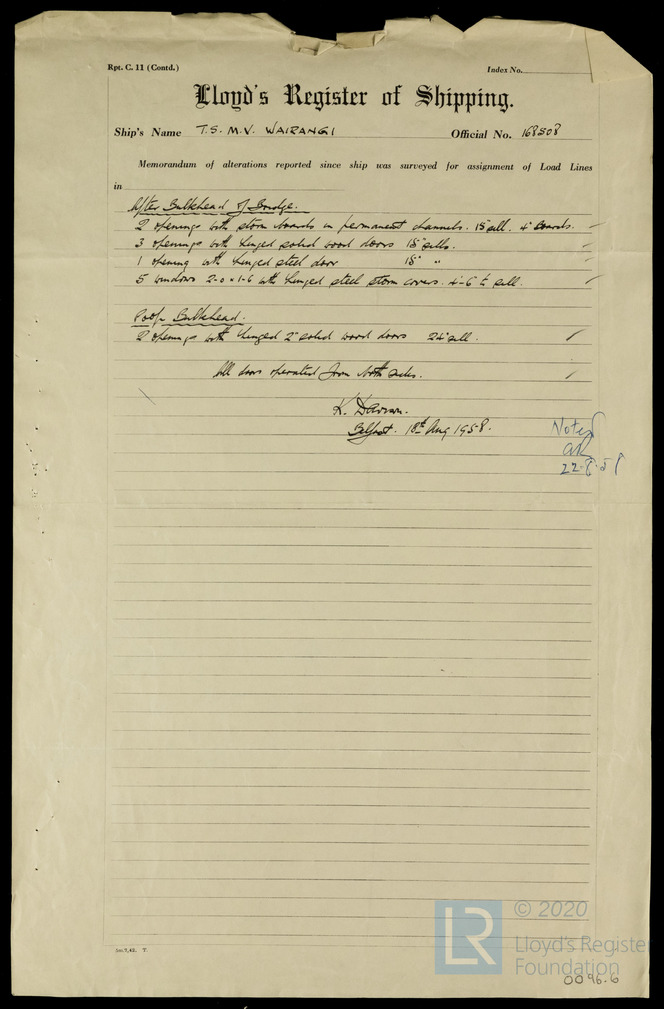 Rpt. C. 11 (Contd.)
Index No.
Lloyd's Register of Shipping.
Ship's Name T.S. M.V. WAIRANGI Official No. 168508
Memorandum of alterations reported since ship was surveyed for assignment of Load Lines
in
After Bulkhead of Bridge.
2 openings with storm boards in permanent channels. 15" sill. 4" Boards.
3 openings with hinged solid wood doors 18" sills.
1 opening with hinged steel door 18" "
5 windows 2-0 x 1-6 with hinged steel storm covers. 4-6 to sill.
Poop Bulkhead.
2 openings with hinged 2" solid wood doors 24" sill.
All doors operated from both sides.
K.
Belfast. 18th Aug 1958.
Noted
22-8-58
5M.7,42. T.
LR
© 2020
Lloyd's Register
Foundation
0096-6